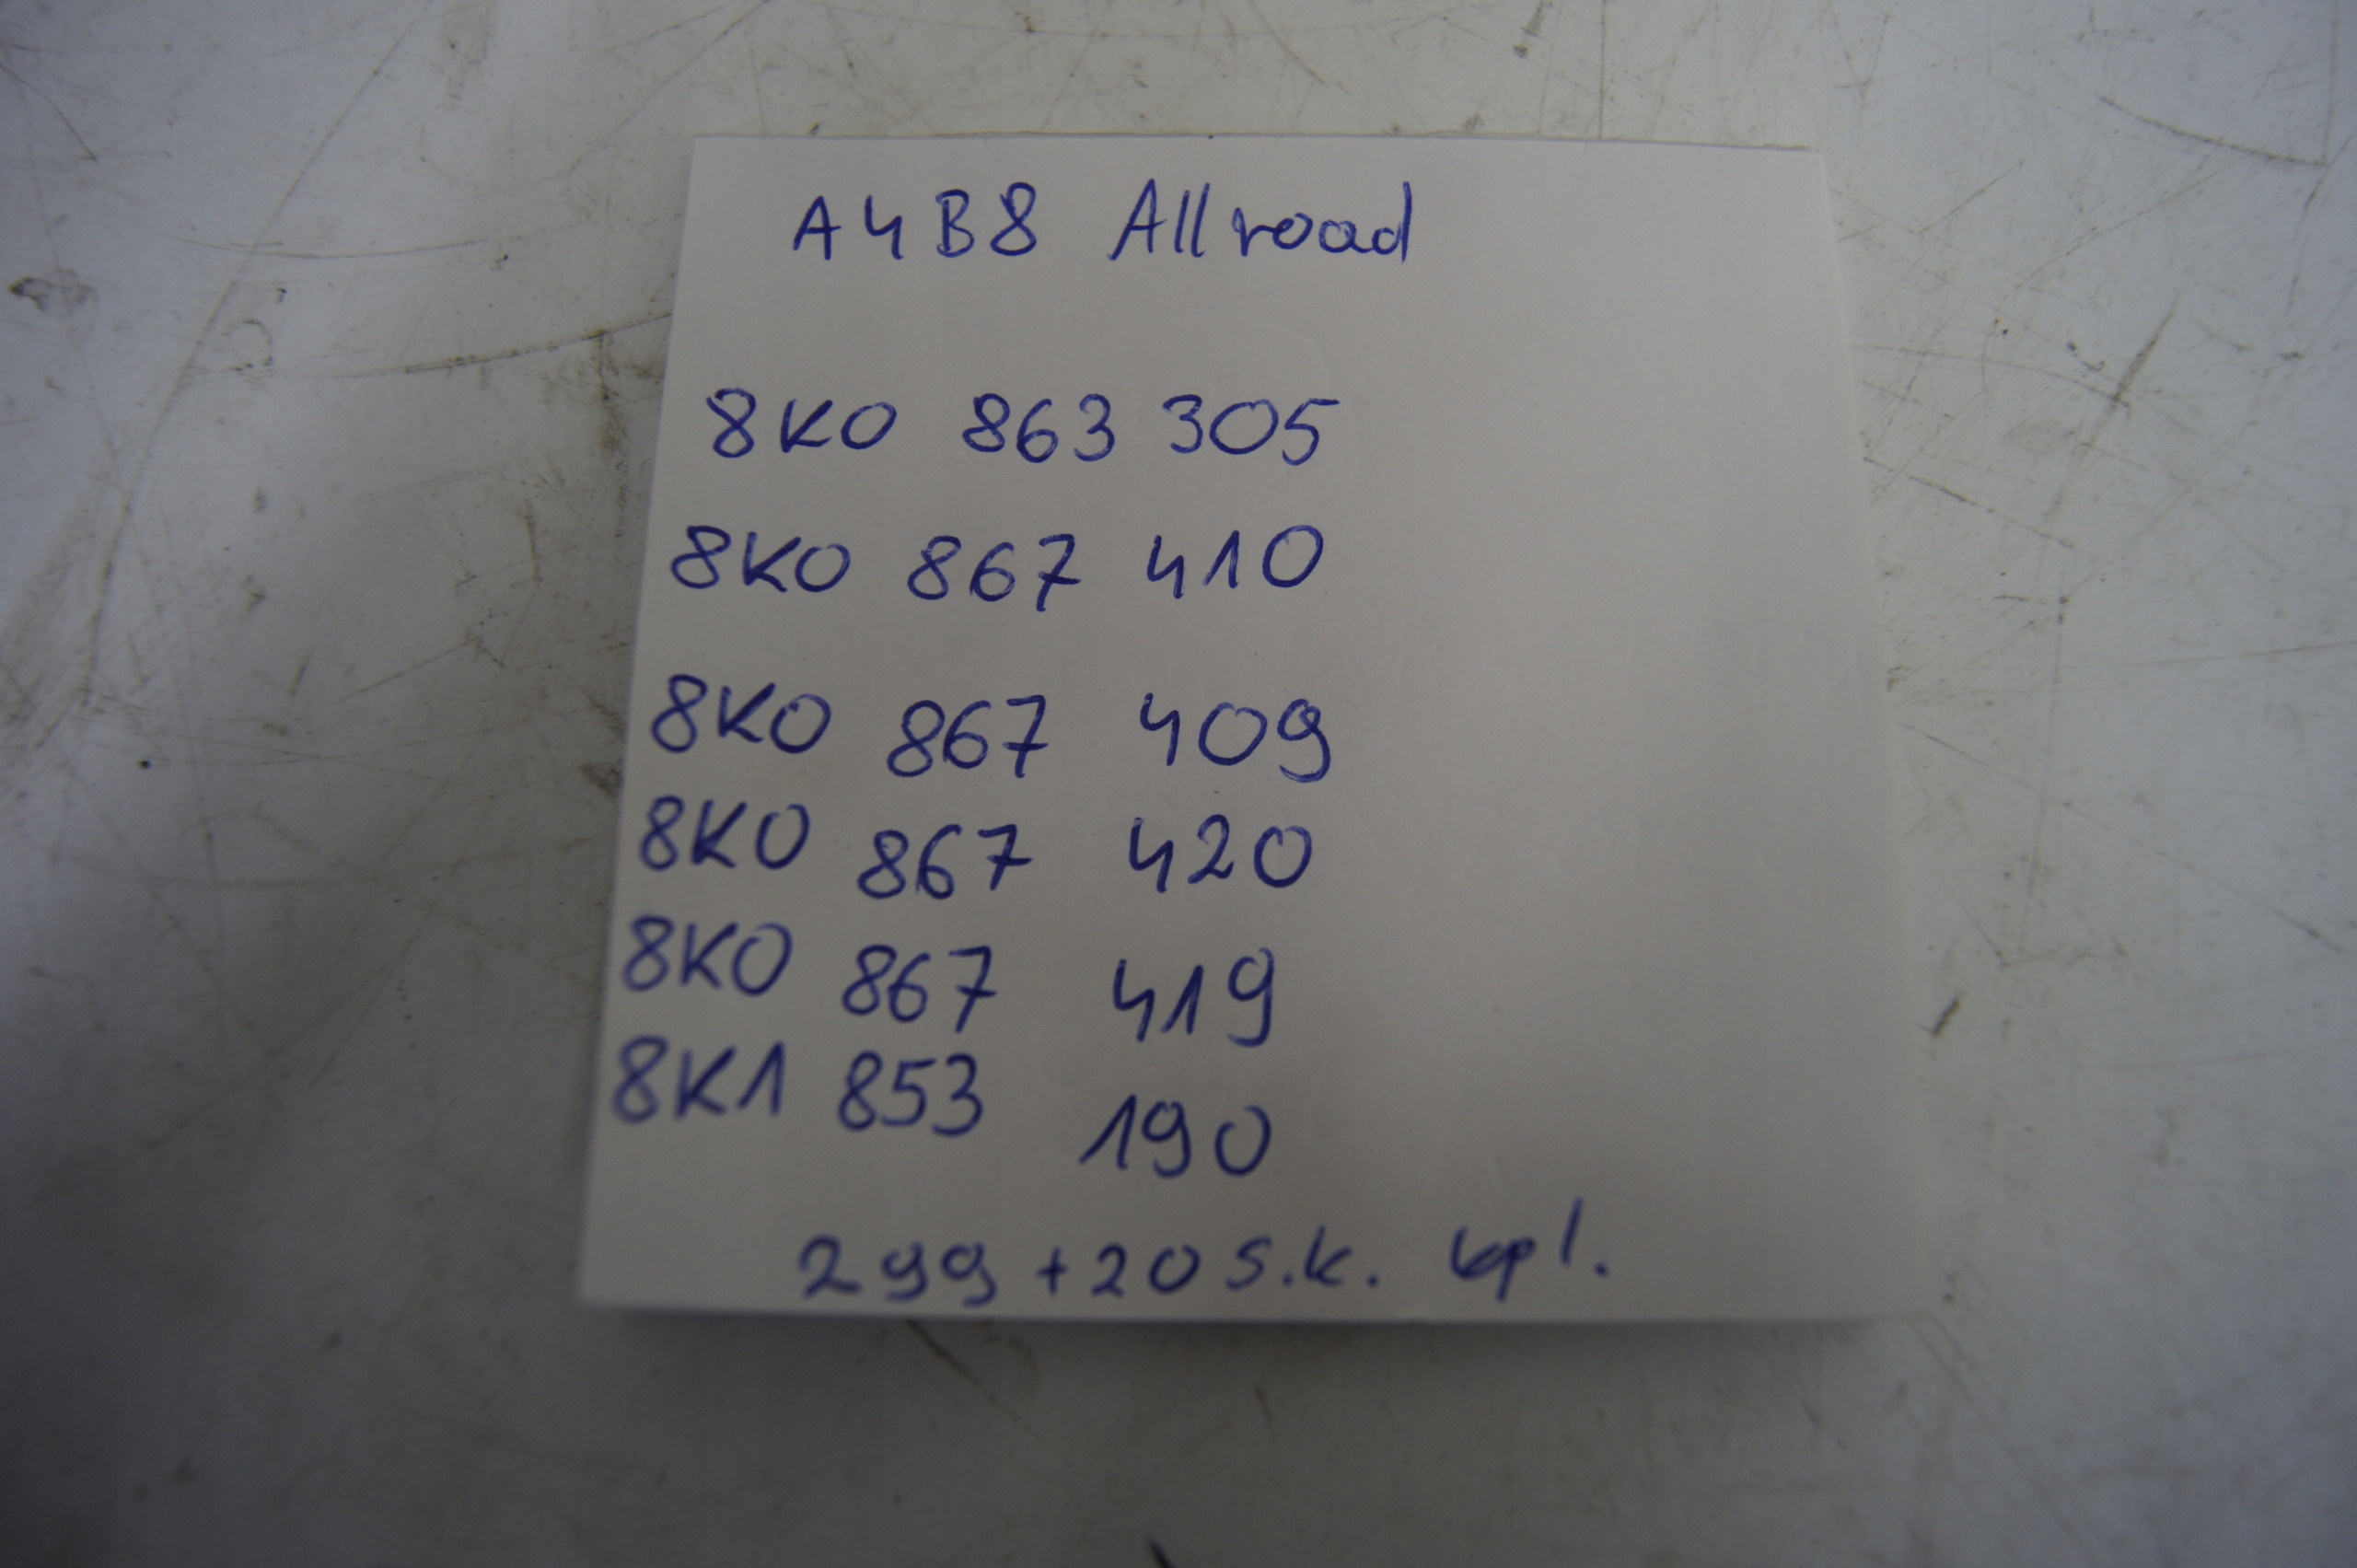 A4B8 Allroad
8K0 863 305
8K0 867 410
8K0 867 409
8K0 867 420
8K0 867 419
8K1 853 190
299 + 20 S.k. kpl.